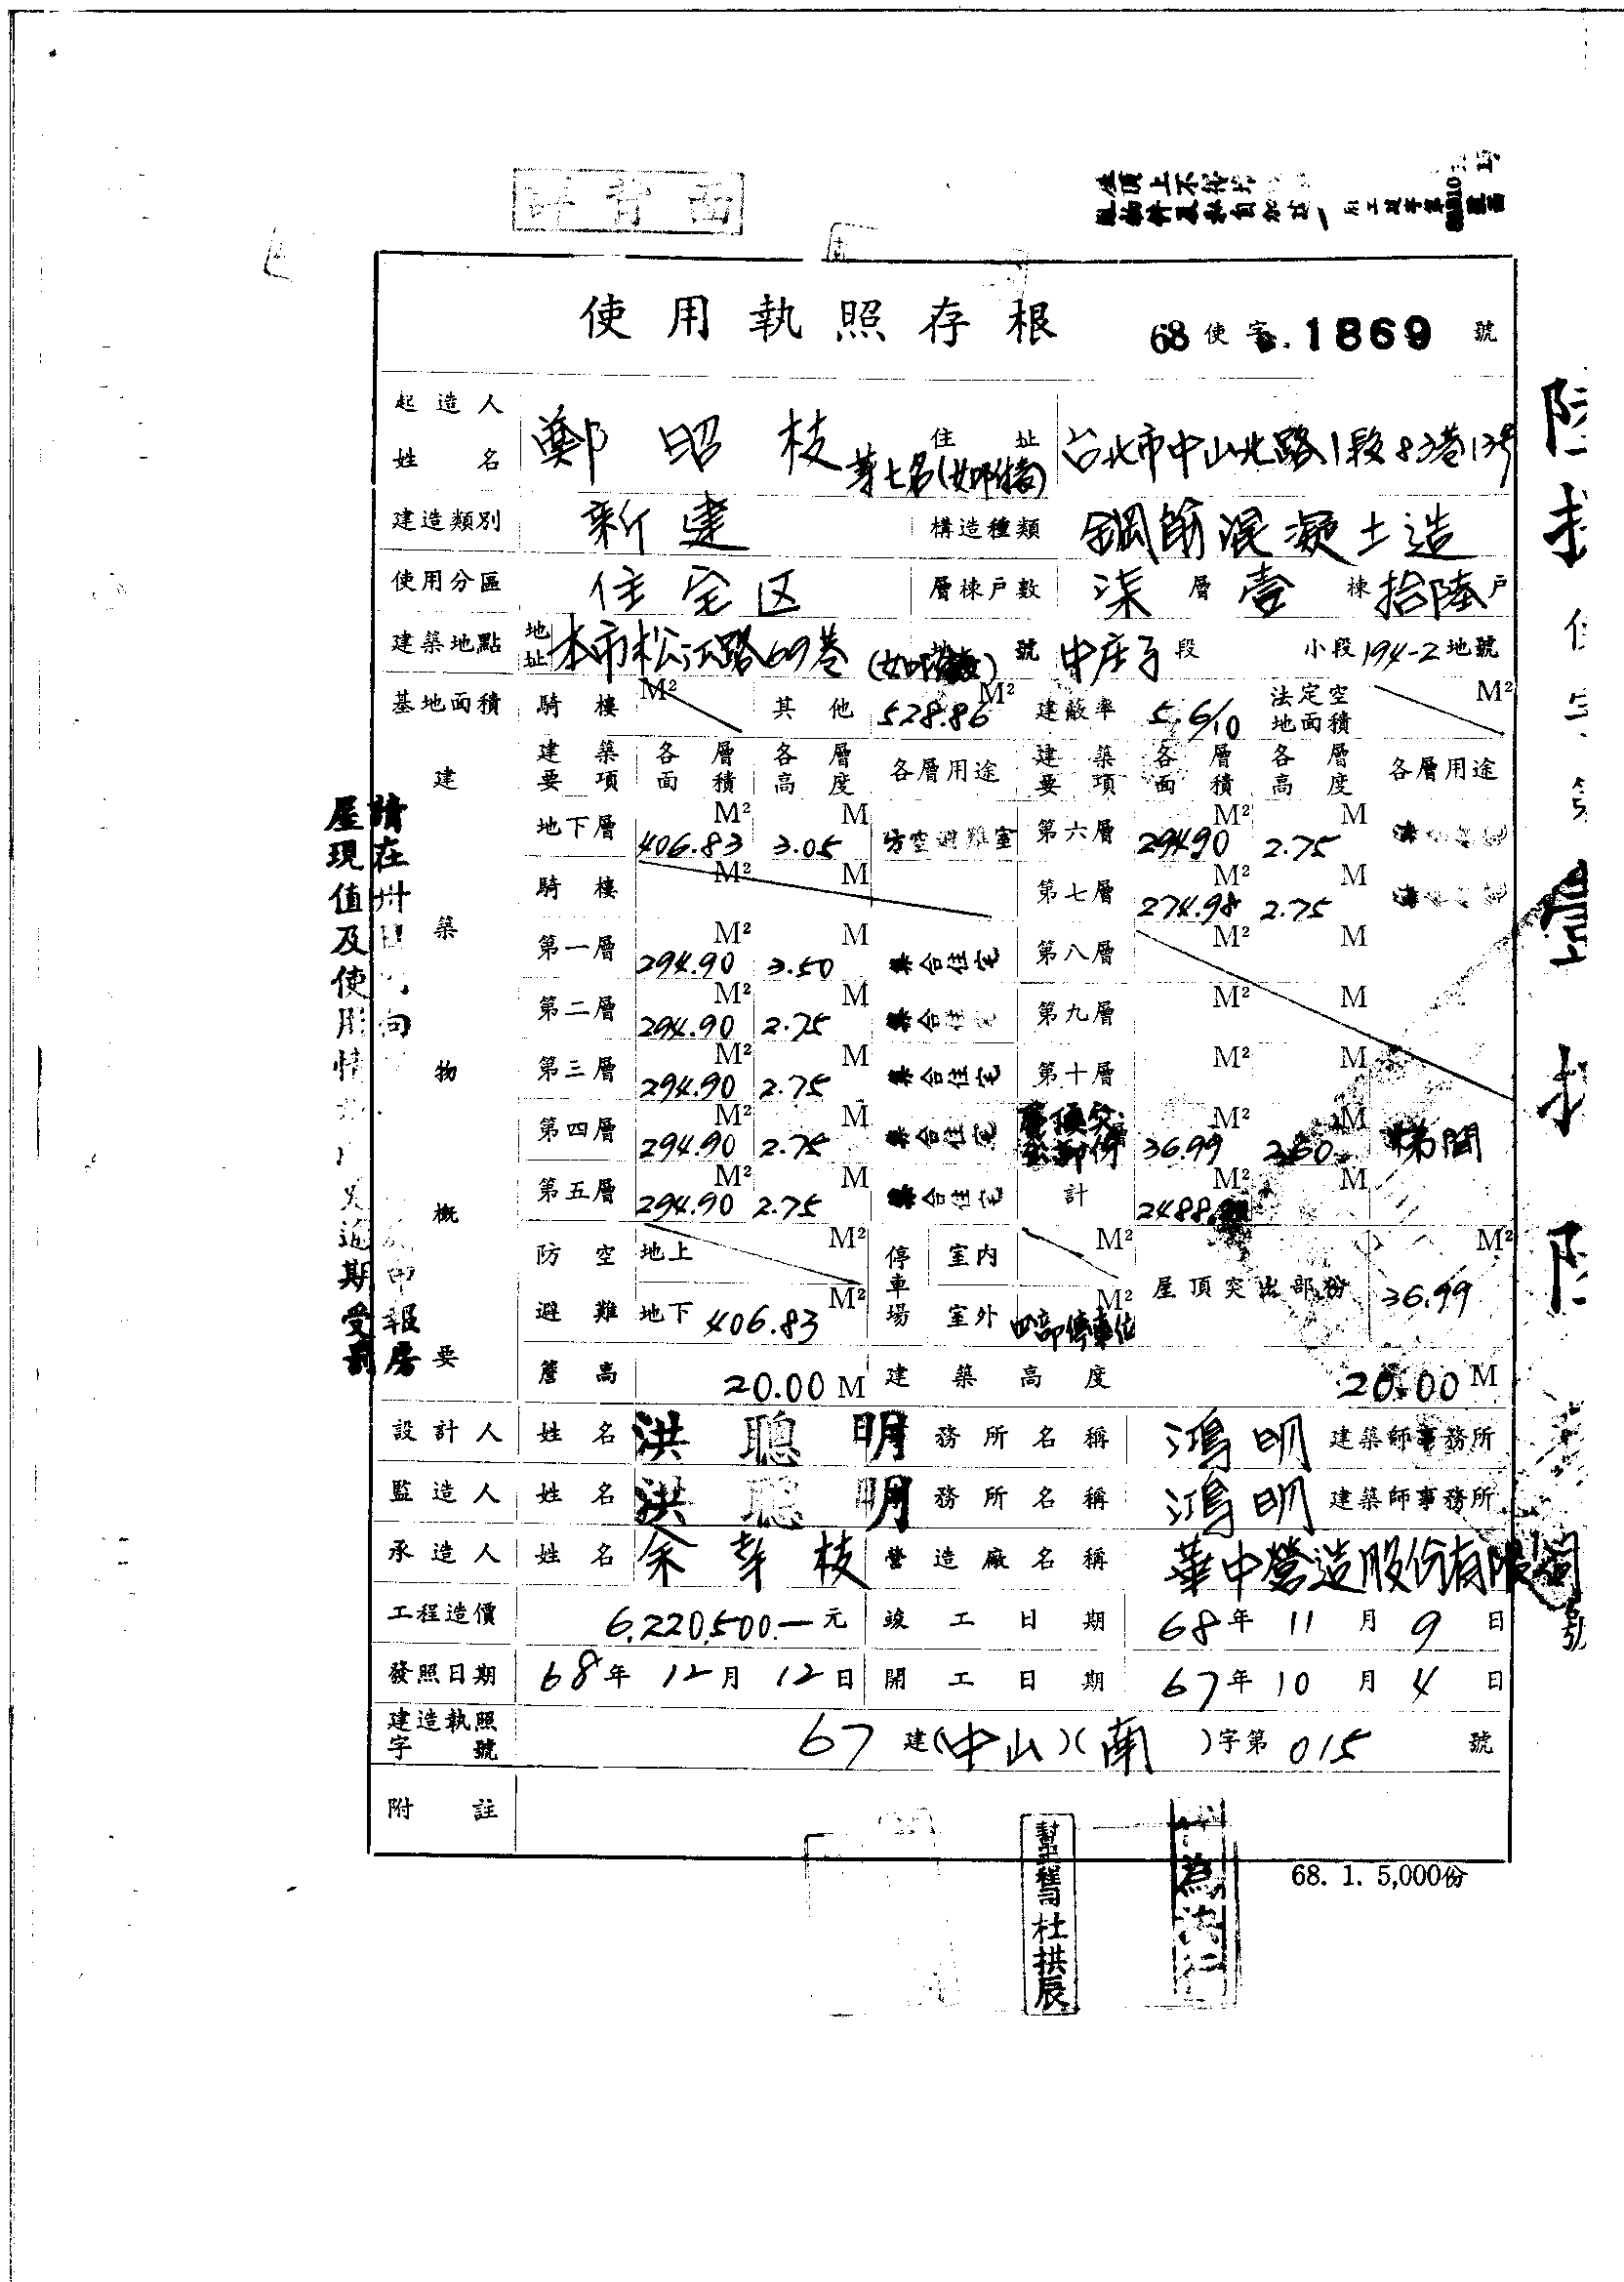 使用執照存根 68使字 1869 號
起造人姓名 鄭昭枝 第七名(如附表) 住址 台北市中山北路1段83巷13号
建造類別 新建 構造種類 鋼筋混凝土造
使用分區 住宅区 層棟戶數 柒層壹棟拾陸戶
建築地點 地址 本市松江路69巷 地號 中庄子段 小段194-2地號
基地面積 騎樓 M² 其他 528.86 M² 建蔽率 5.6/10 法定空地面積 M²
建築物概要
建築要項 各層面積 各層高度 各層用途 建築要項 各層面積 各層高度 各層用途
地下層 406.83 M² 3.05 M 防空避難室 第六層 294.90 M² 2.75 M
騎樓 M² M 第七層 274.98 M² 2.75 M
第一層 294.90 M² 3.50 M 集合住宅 第八層 M² M
第二層 294.90 M² 2.75 M 集合住宅 第九層 M² M
第三層 294.90 M² 2.75 M 集合住宅 第十層 M² M
第四層 294.90 M² 2.75 M 集合住宅 36.99 M² M 梯間
第五層 294.90 M² 2.75 M 集合住宅 計 2488. M² M
防空避難 地上 M² 停車場 室內 M² 屋頂突出部份 36.99 M²
地下 406.83 M² 室外 M²
簷高 20.00 M 建築高度 20.00 M
設計人 姓名 洪聰明 務所名稱 鴻明 建築師事務所
監造人 姓名 洪聰明 務所名稱 鴻明 建築師事務所
承造人 姓名 余幸枝 營造廠名稱 華中營造股份有限
工程造價 6,220,500.一元 竣工日期 68年11月9日
發照日期 68年12月12日 開工日期 67年10月4日
建造執照字號 67建(中山)(南)字第015號
附註
68. 1. 5,000份
杜拱辰